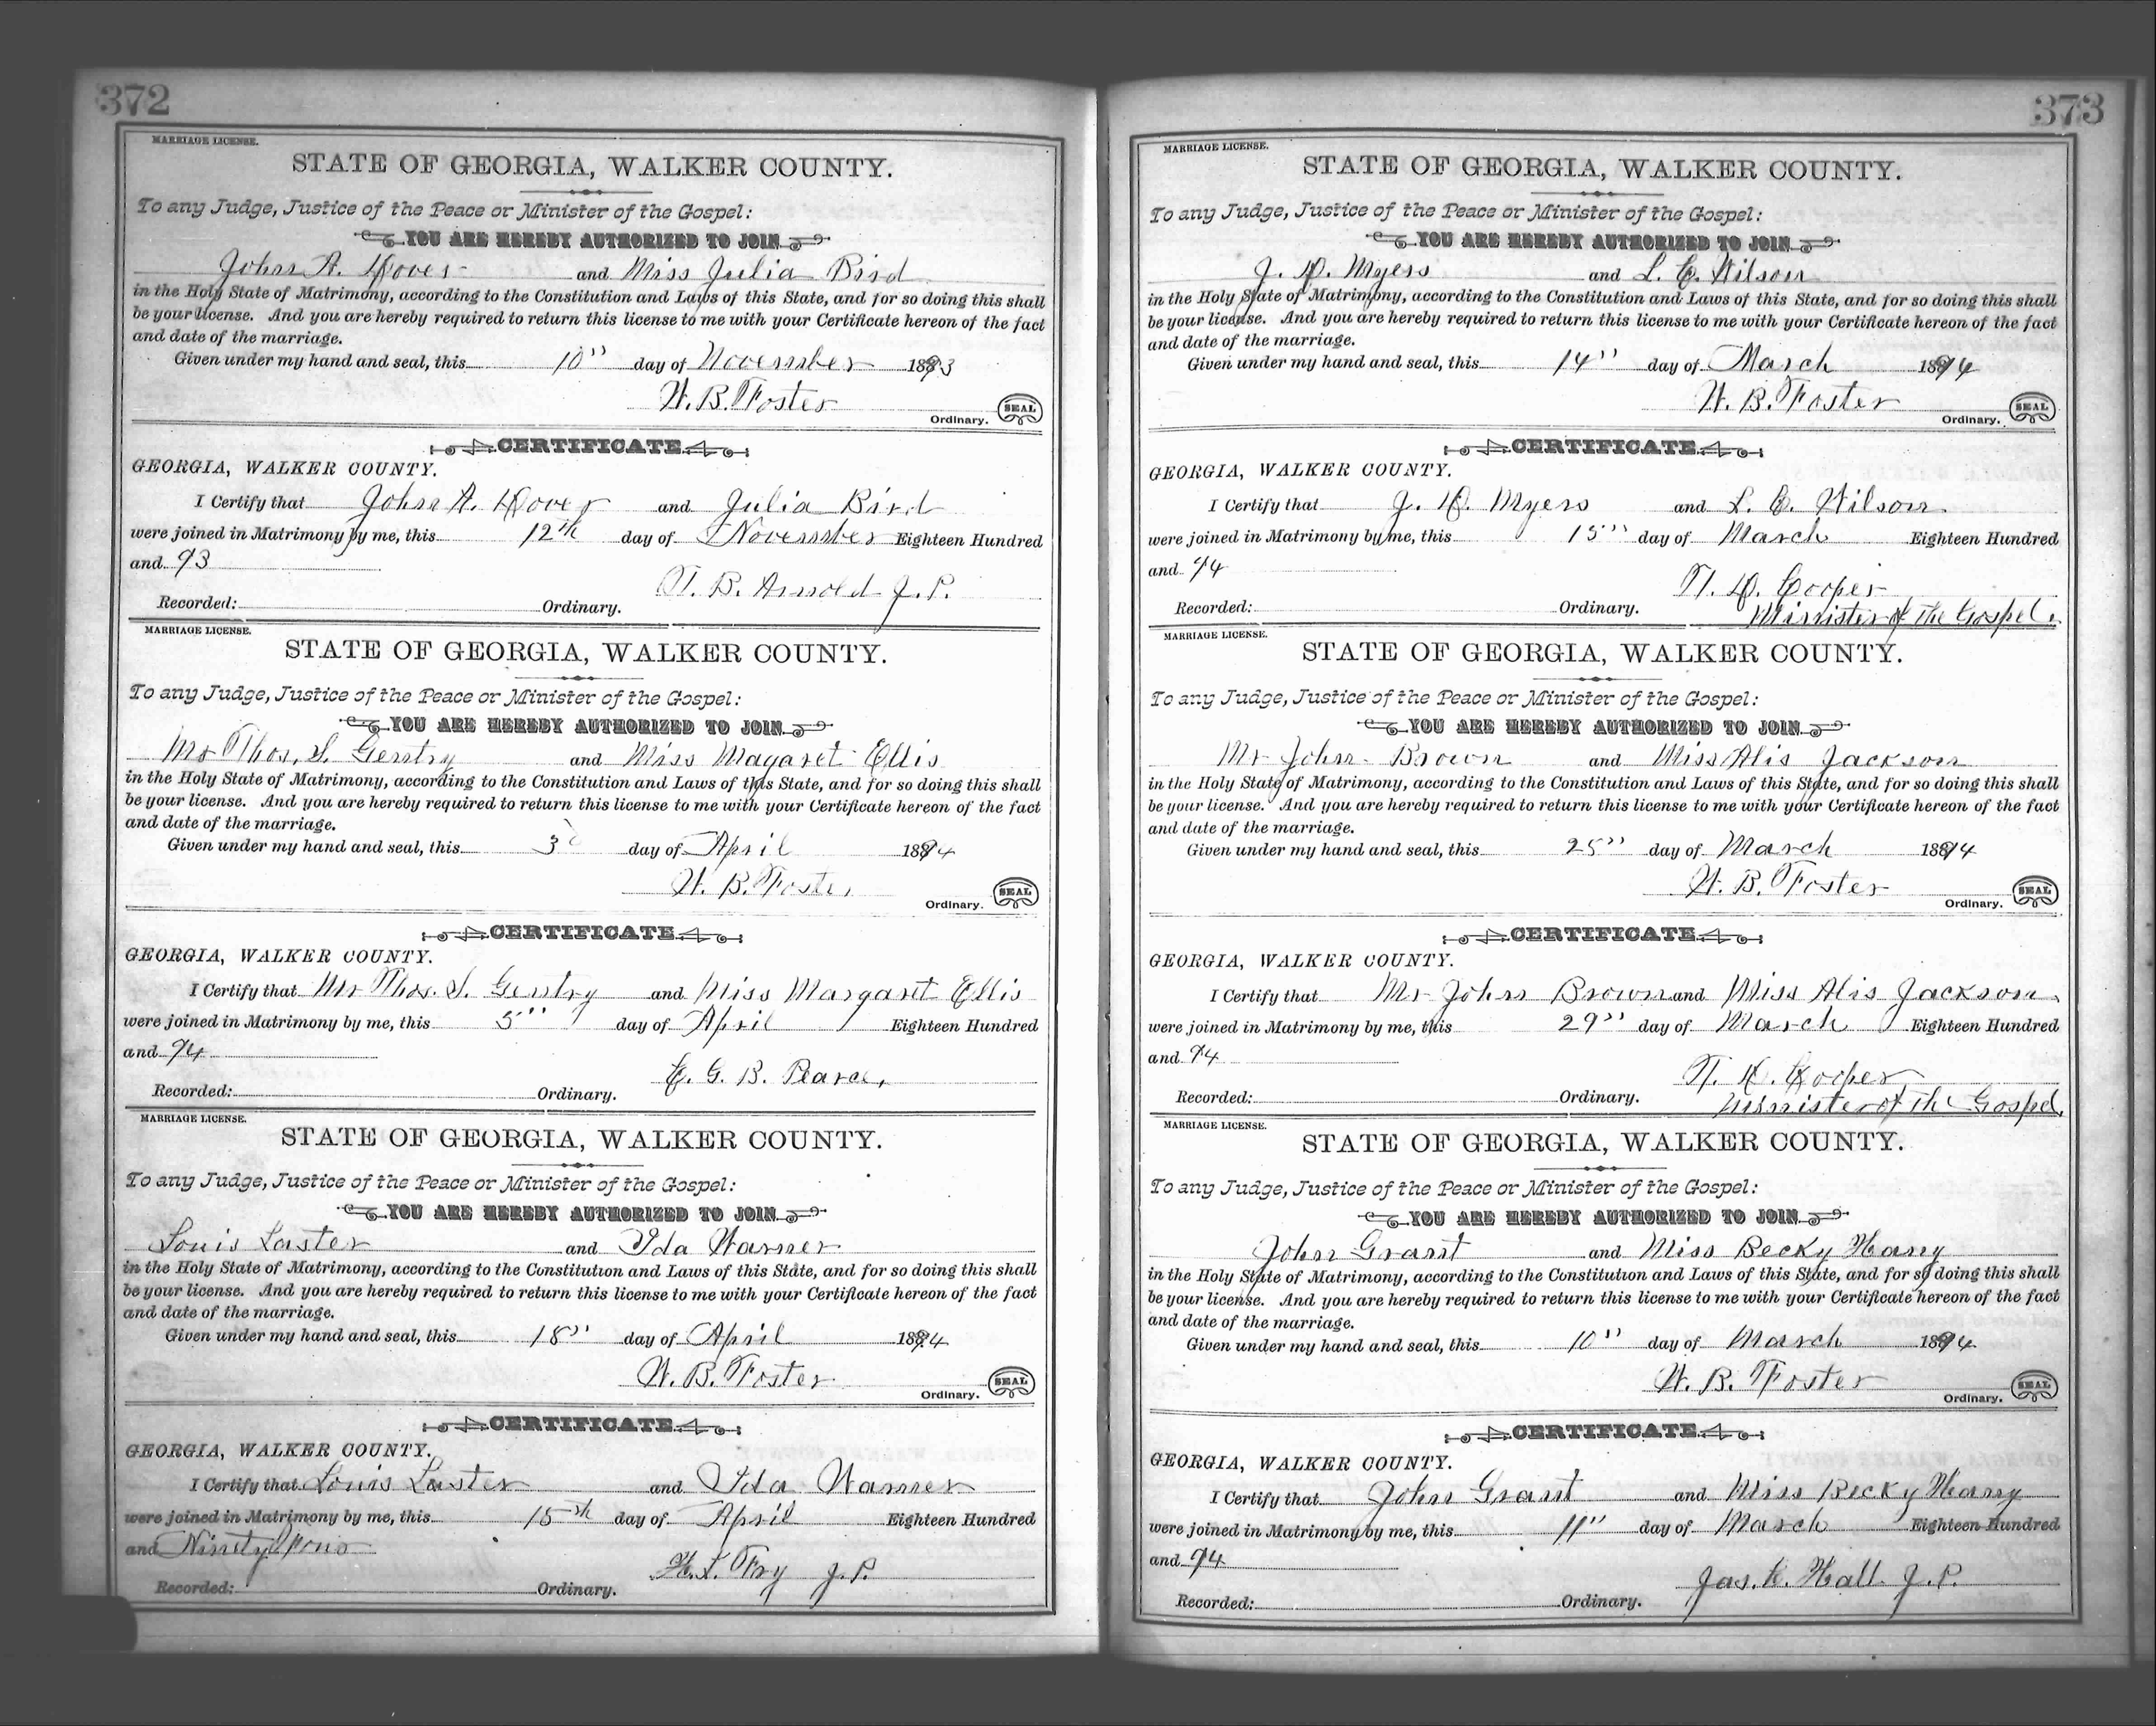 372
MARRIAGE LICENSE.
STATE OF GEORGIA, WALKER COUNTY.
To any Judge, Justice of the Peace or Minister of the Gospel:
YOU ARE HEREBY AUTHORIZED TO JOIN
John A. Dover and Miss Julia Bird
in the Holy State of Matrimony, according to the Constitution and Laws of this State, and for so doing this shall
be your license. And you are hereby required to return this license to me with your Certificate hereon of the fact
and date of the marriage.
Given under my hand and seal, this 10" day of November 1893
W. B. Foster
Ordinary. SEAL
CERTIFICATE
GEORGIA, WALKER COUNTY.
I Certify that John A. Dover and Julia Bird
were joined in Matrimony by me, this 12th day of November Eighteen Hundred
and 93
T. B. Arnold J. P.
Recorded: Ordinary.
MARRIAGE LICENSE.
STATE OF GEORGIA, WALKER COUNTY.
To any Judge, Justice of the Peace or Minister of the Gospel:
YOU ARE HEREBY AUTHORIZED TO JOIN
Mr Thos. S. Gentry and Miss Magaret Ellis
in the Holy State of Matrimony, according to the Constitution and Laws of this State, and for so doing this shall
be your license. And you are hereby required to return this license to me with your Certificate hereon of the fact
and date of the marriage.
Given under my hand and seal, this 3d day of April 1894
W. B. Foster
Ordinary. SEAL
CERTIFICATE
GEORGIA, WALKER COUNTY.
I Certify that Mr Thos. S. Gentry and Miss Margaret Ellis
were joined in Matrimony by me, this 5" day of April Eighteen Hundred
and 94
E. G. B. Pearce,
Recorded: Ordinary.
MARRIAGE LICENSE.
STATE OF GEORGIA, WALKER COUNTY.
To any Judge, Justice of the Peace or Minister of the Gospel:
YOU ARE HEREBY AUTHORIZED TO JOIN
Louis Laster and Ida Warner
in the Holy State of Matrimony, according to the Constitution and Laws of this State, and for so doing this shall
be your license. And you are hereby required to return this license to me with your Certificate hereon of the fact
and date of the marriage.
Given under my hand and seal, this 15" day of April 1894
W. B. Foster
Ordinary. SEAL
CERTIFICATE
GEORGIA, WALKER COUNTY.
I Certify that Louis Laster and Ida Warner
were joined in Matrimony by me, this 15th day of April Eighteen Hundred
and Ninety Four
H. L. Fry J. P.
Recorded: Ordinary.
373
MARRIAGE LICENSE.
STATE OF GEORGIA, WALKER COUNTY.
To any Judge, Justice of the Peace or Minister of the Gospel:
YOU ARE HEREBY AUTHORIZED TO JOIN
J. D. Myers and L. E. Wilson
in the Holy State of Matrimony, according to the Constitution and Laws of this State, and for so doing this shall
be your license. And you are hereby required to return this license to me with your Certificate hereon of the fact
and date of the marriage.
Given under my hand and seal, this 14" day of March 1894
W. B. Foster
Ordinary. SEAL
CERTIFICATE
GEORGIA, WALKER COUNTY.
I Certify that J. D. Myers and L. E. Wilson
were joined in Matrimony by me, this 15" day of March Eighteen Hundred
and 94
T. D. Cooper
Recorded: Ordinary. Minister of the Gospel.
MARRIAGE LICENSE.
STATE OF GEORGIA, WALKER COUNTY.
To any Judge, Justice of the Peace or Minister of the Gospel:
YOU ARE HEREBY AUTHORIZED TO JOIN
Mr John Brown and Miss Alis Jackson
in the Holy State of Matrimony, according to the Constitution and Laws of this State, and for so doing this shall
be your license. And you are hereby required to return this license to me with your Certificate hereon of the fact
and date of the marriage.
Given under my hand and seal, this 25" day of March 1894
W. B. Foster
Ordinary. SEAL
CERTIFICATE
GEORGIA, WALKER COUNTY.
I Certify that Mr John Brown and Miss Alis Jackson
were joined in Matrimony by me, this 29" day of March Eighteen Hundred
and 94
T. D. Cooper
Recorded: Ordinary. Minister of the Gospel,
MARRIAGE LICENSE.
STATE OF GEORGIA, WALKER COUNTY.
To any Judge, Justice of the Peace or Minister of the Gospel:
YOU ARE HEREBY AUTHORIZED TO JOIN
John Grant and Miss Becky Hany
in the Holy State of Matrimony, according to the Constitution and Laws of this State, and for so doing this shall
be your license. And you are hereby required to return this license to me with your Certificate hereon of the fact
and date of the marriage.
Given under my hand and seal, this 10" day of March 1894
W. B. Foster
Ordinary. SEAL
CERTIFICATE
GEORGIA, WALKER COUNTY.
I Certify that John Grant and Miss Becky Hany
were joined in Matrimony by me, this 11" day of March Eighteen Hundred
and 94
Jas. E. Hall J. P.
Recorded: Ordinary.